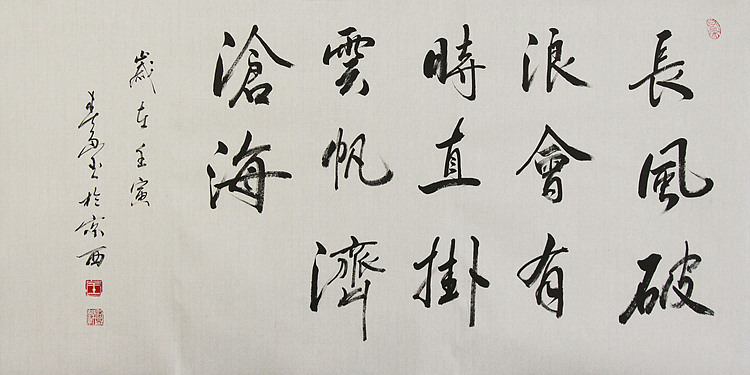 長風破
浪會有
時直掛
雲帆濟
滄海
歲在壬寅
於京西